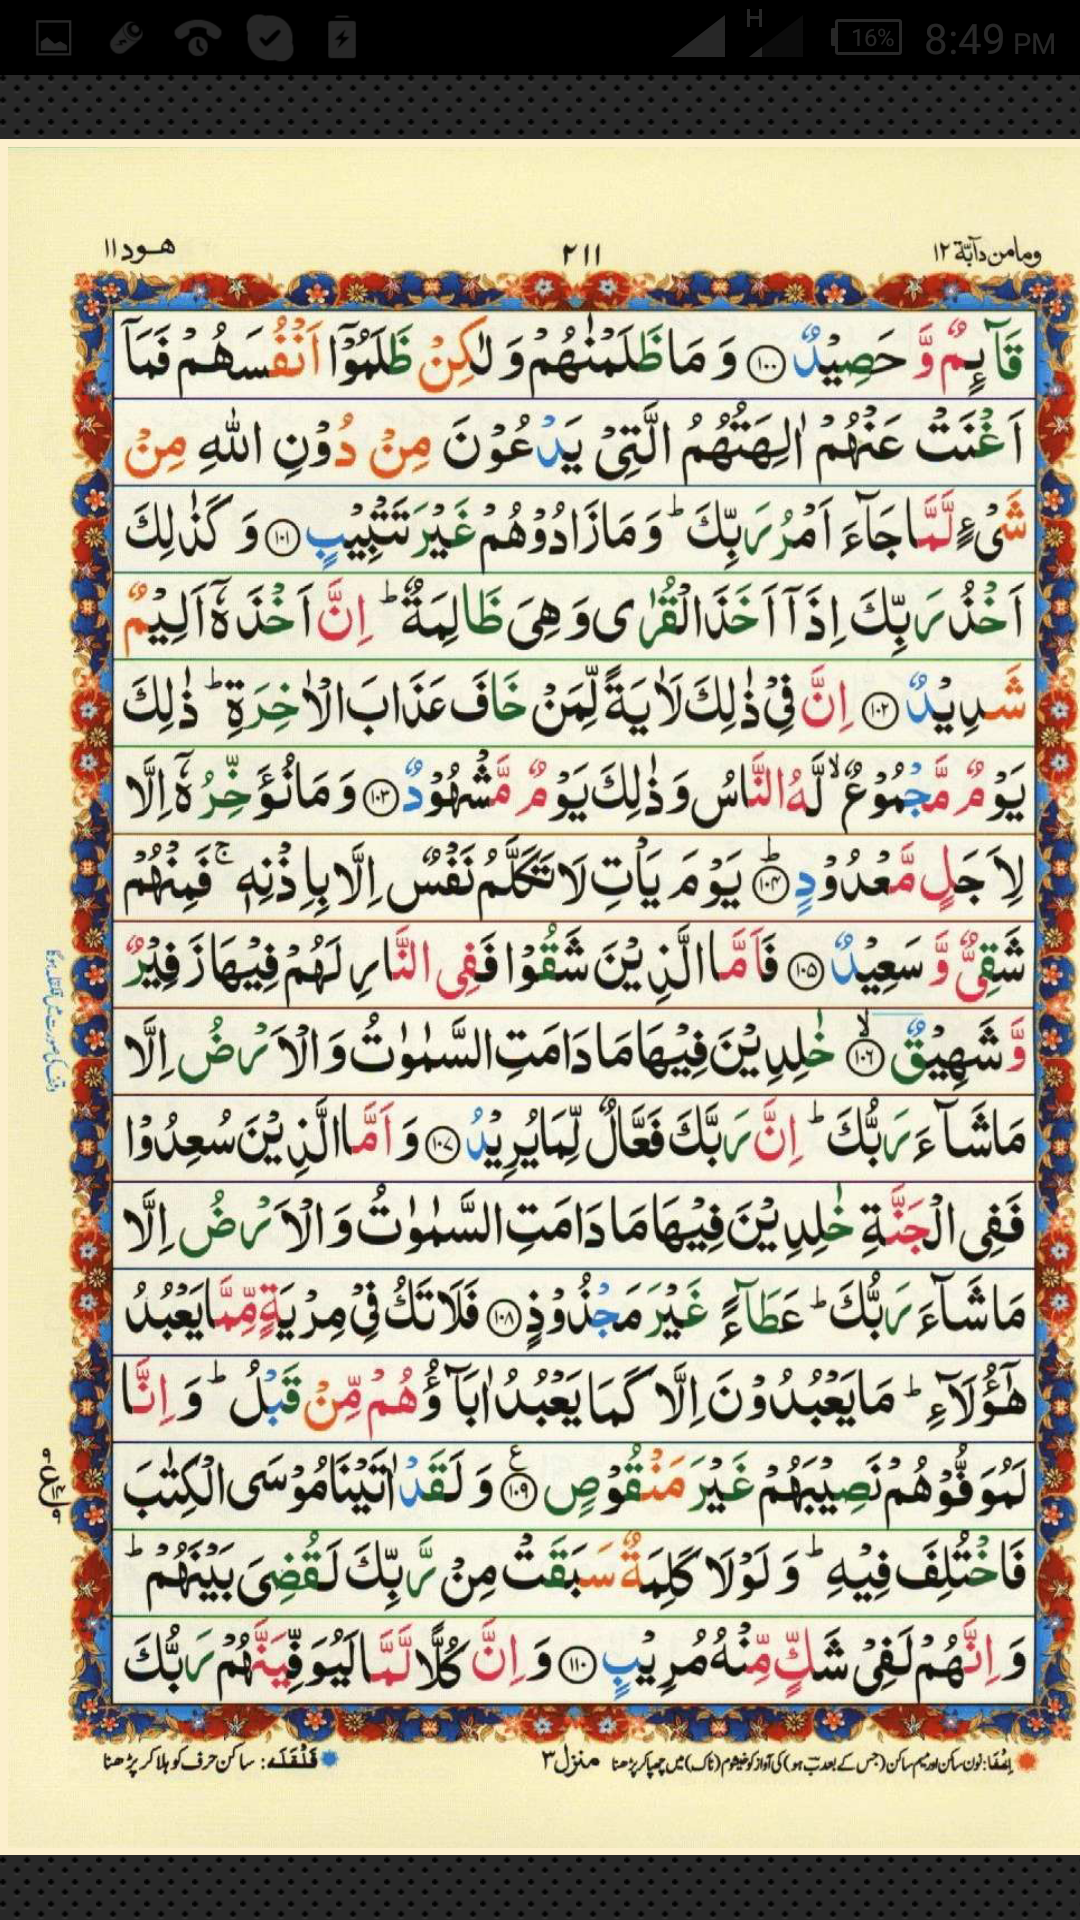 H 16% 8:49 PM
ومامن دآبّة ١٢ ٢١١ هود ١١
قَآىِٕمٌ وَّ حَصِیْدٌ ﴿۱۰۰﴾ وَ مَا ظَلَمْنٰهُمْ وَ لٰكِنْ ظَلَمُوْۤا اَنْفُسَهُمْ فَمَاۤ
اَغْنَتْ عَنْهُمْ اٰلِهَتُهُمُ الَّتِیْ یَدْعُوْنَ مِنْ دُوْنِ اللّٰهِ مِنْ
شَیْءٍ لَّمَّا جَآءَ اَمْرُ رَبِّكَ ؕ وَ مَا زَادُوْهُمْ غَیْرَ تَتْبِیْبٍ ﴿۱۰۱﴾ وَ كَذٰلِكَ
اَخْذُ رَبِّكَ اِذَاۤ اَخَذَ الْقُرٰی وَ هِیَ ظَالِمَةٌ ؕ اِنَّ اَخْذَهٗۤ اَلِیْمٌ
شَدِیْدٌ ﴿۱۰۲﴾ اِنَّ فِیْ ذٰلِكَ لَاٰیَةً لِّمَنْ خَافَ عَذَابَ الْاٰخِرَةِ ؕ ذٰلِكَ
یَوْمٌ مَّجْمُوْعٌ ۙ لَّهُ النَّاسُ وَ ذٰلِكَ یَوْمٌ مَّشْهُوْدٌ ﴿۱۰۳﴾ وَ مَا نُؤَخِّرُهٗۤ اِلَّا
لِاَجَلٍ مَّعْدُوْدٍ ﴿۱۰۴﴾ؕ یَوْمَ یَاْتِ لَا تَكَلَّمُ نَفْسٌ اِلَّا بِاِذْنِهٖ ۚ فَمِنْهُمْ
شَقِیٌّ وَّ سَعِیْدٌ ﴿۱۰۵﴾ فَاَمَّا الَّذِیْنَ شَقُوْا فَفِی النَّارِ لَهُمْ فِیْهَا زَفِیْرٌ
وَّ شَهِیْقٌ ﴿۱۰۶﴾ۙ خٰلِدِیْنَ فِیْهَا مَا دَامَتِ السَّمٰوٰتُ وَ الْاَرْضُ اِلَّا
مَا شَآءَ رَبُّكَ ؕ اِنَّ رَبَّكَ فَعَّالٌ لِّمَا یُرِیْدُ ﴿۱۰۷﴾ وَ اَمَّا الَّذِیْنَ سُعِدُوْا
فَفِی الْجَنَّةِ خٰلِدِیْنَ فِیْهَا مَا دَامَتِ السَّمٰوٰتُ وَ الْاَرْضُ اِلَّا
مَا شَآءَ رَبُّكَ ؕ عَطَآءً غَیْرَ مَجْذُوْذٍ ﴿۱۰۸﴾ فَلَا تَكُ فِیْ مِرْیَةٍ مِّمَّا یَعْبُدُ
هٰۤؤُلَآءِ ؕ مَا یَعْبُدُوْنَ اِلَّا كَمَا یَعْبُدُ اٰبَآؤُهُمْ مِّنْ قَبْلُ ؕ وَ اِنَّا
لَمُوَفُّوْهُمْ نَصِیْبَهُمْ غَیْرَ مَنْقُوْصٍ ﴿۱۰۹﴾ع وَ لَقَدْ اٰتَیْنَا مُوْسَی الْكِتٰبَ
فَاخْتُلِفَ فِیْهِ ؕ وَ لَوْلَا كَلِمَةٌ سَبَقَتْ مِنْ رَّبِّكَ لَقُضِیَ بَیْنَهُمْ ؕ
وَ اِنَّهُمْ لَفِیْ شَكٍّ مِّنْهُ مُرِیْبٍ ﴿۱۱۰﴾ وَ اِنَّ كُلًّا لَّمَّا لَیُوَفِّیَنَّهُمْ رَبُّكَ
اِخْفَا: نون ساکن اور میم ساکن (جس کے بعد ب ہو) کی آواز کو خیشوم (ناک) میں چھپا کر پڑھنا منزل ٣ قَلْقَلَه: ساکن حرف کو ہلا کر پڑھنا